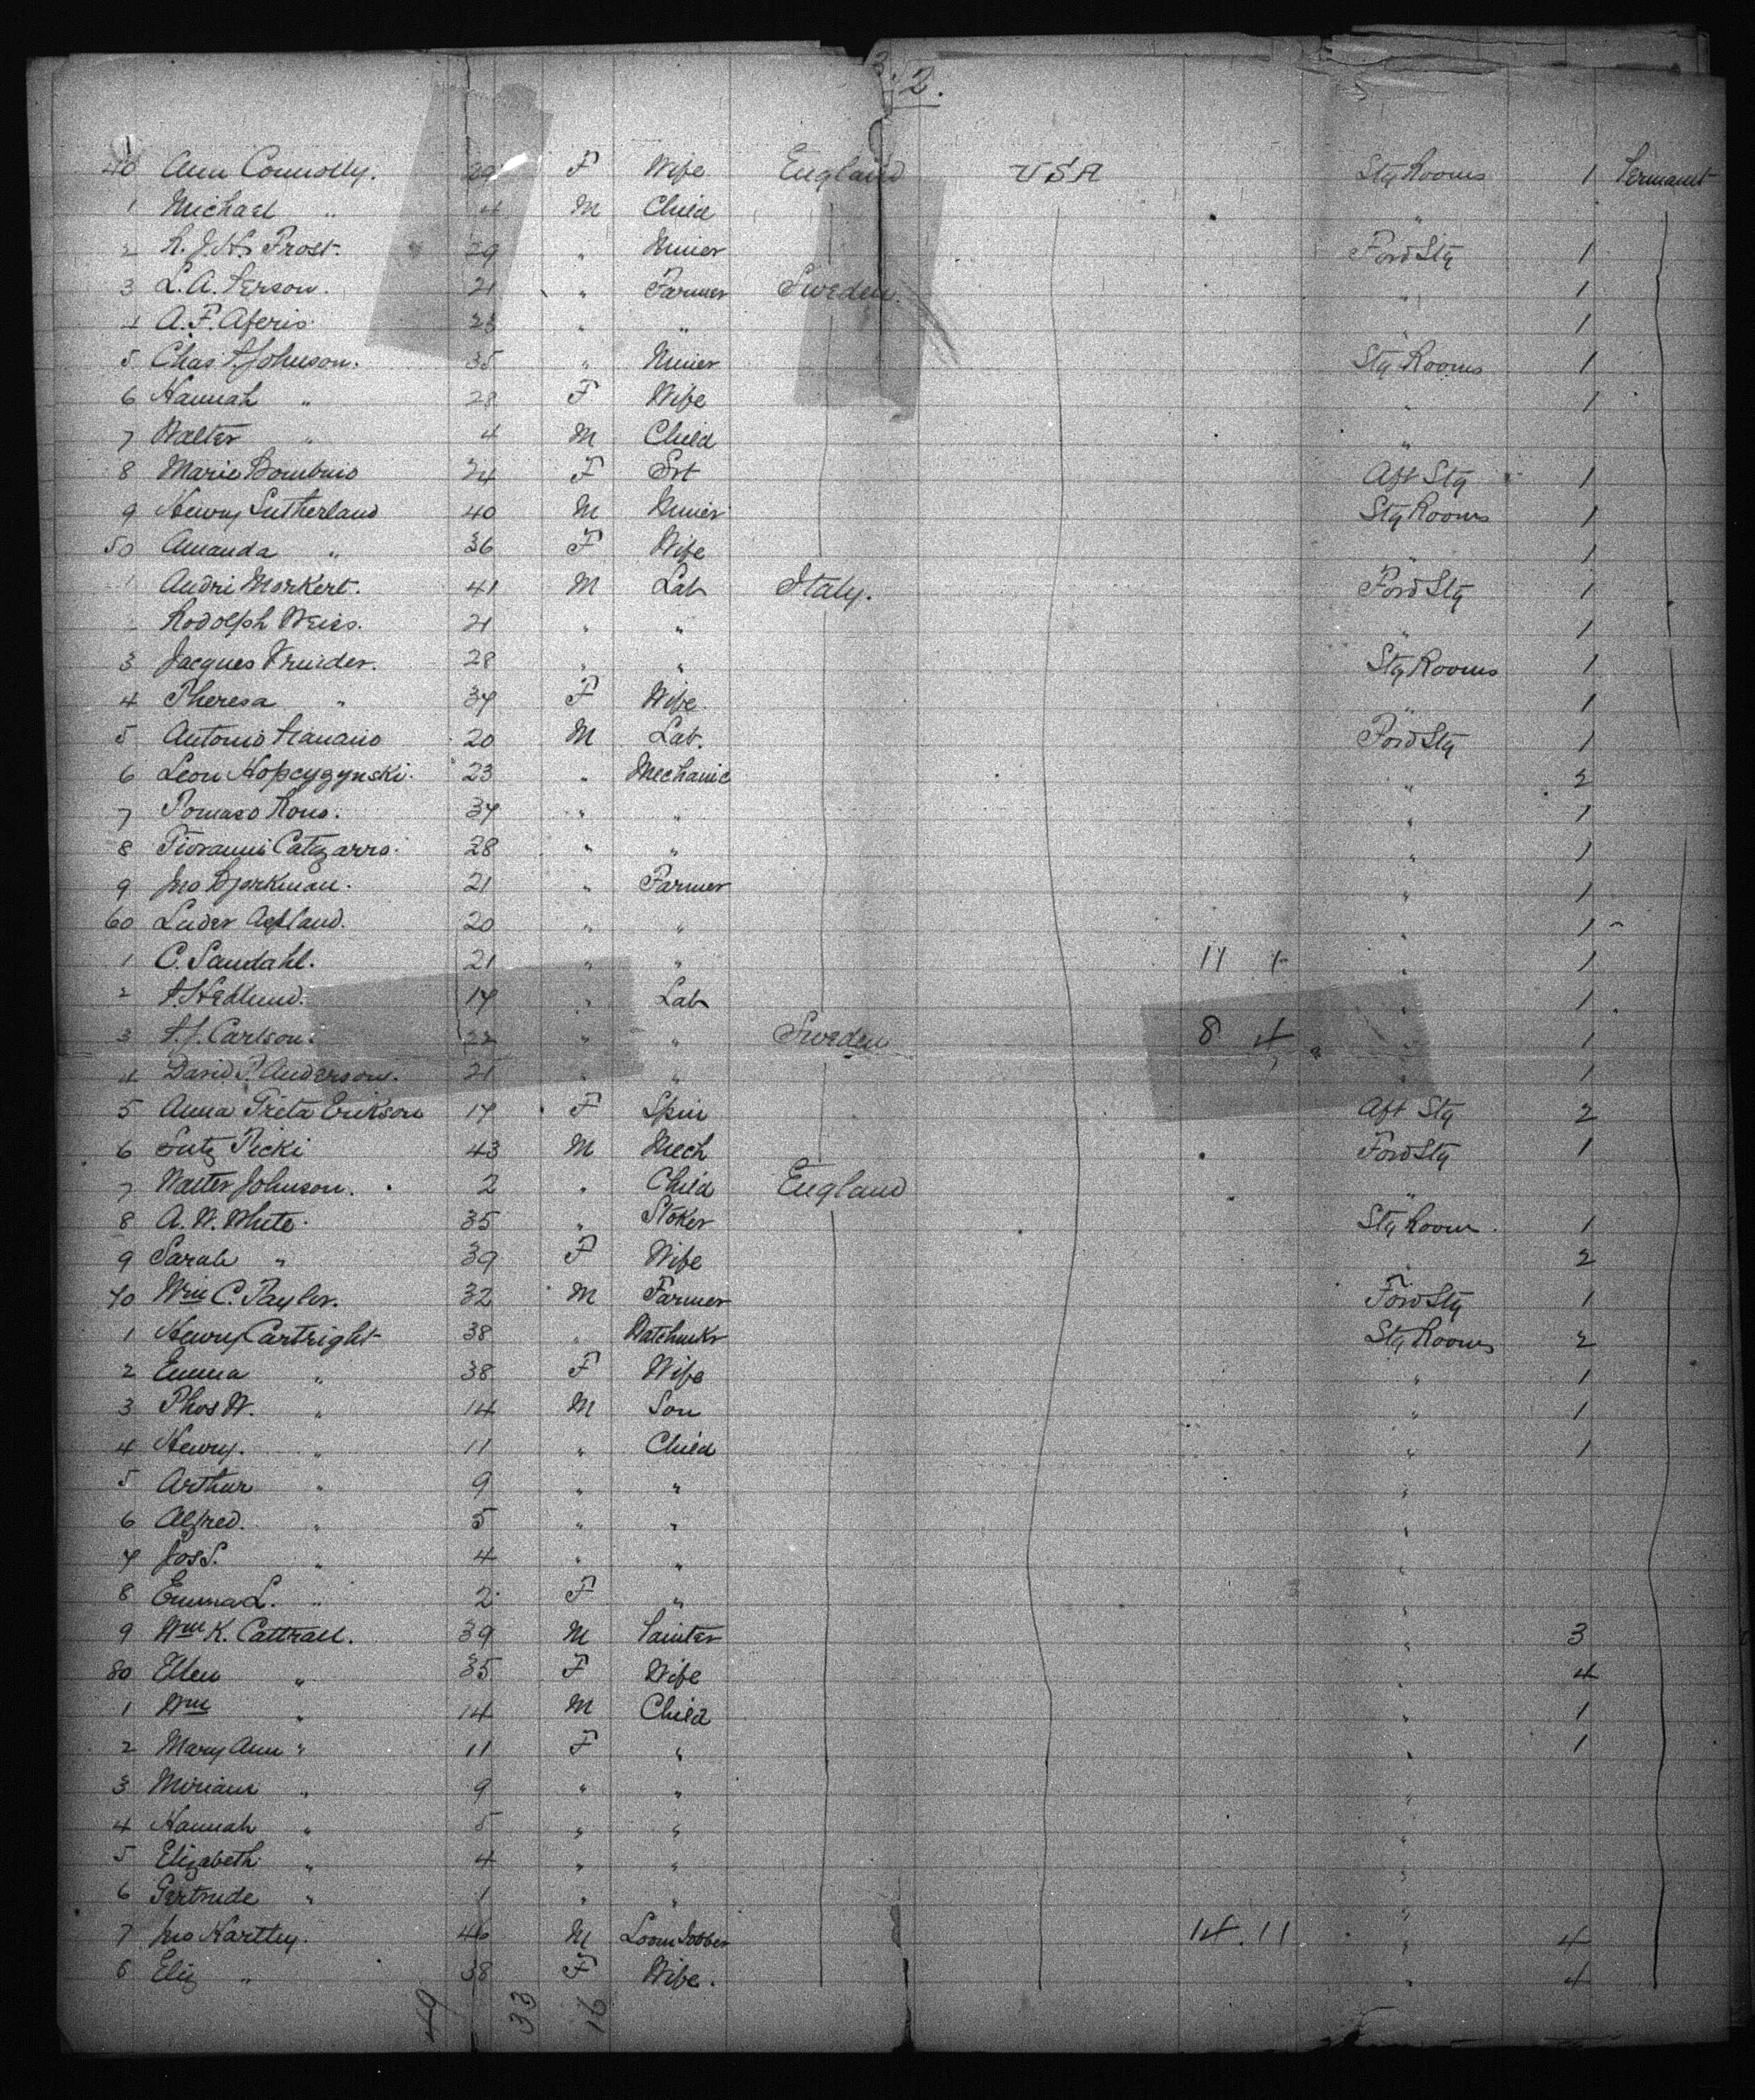 2.
40 Ann Connolly. 29 F Wife England USA Stg Rooms 1 Permanent
1 Michael " 4 M Child "
2 R. J. H. Prost. 29 " Miner Ford Stg 1
3 L. A. Person. 21 " Farmer Sweden. " 1
4 A. F. 23 " " " 1
5 Chas P. Johnson. 35 " Miner Stg Rooms 1
6 Hannah " 28 F Wife " 1
7 Walter " 4 M Child "
8 Marie 24 F Srt Aft Stg 1
9 Henry Sutherland 40 M Miner Stg Rooms 1
50 Amanda " 36 F Wife " 1
1 Andri Morkert. 41 M Lab Italy. Ford Stg 1
2 Rodolph Weiss. 21 " " " 1
3 Jacques 28 " " Stg Rooms 1
4 Theresa " 34 F Wife " 1
5 Antonio 20 M Lab. Ford Stg 1
6 Leon Hopcyzynski. 23 " Mechanic " 2
7 Tomaso Rons. 34 " " " 1
8 Giovanni Catizarro. 28 " " " 1
9 Jno Bjorkman. 21 " Farmer " 1
60 Luder 20 " " " 1
1 C. Sandahl. 21 " " 11 1 " 1
2 A. Hedlund. 17 " Lab " 1
3 A. J. Carlson. 22 " " Sweden 8 4 " 1
4 David P. Anderson. 21 " " " 1
5 Anna Greta Erikson 17 F Spin Aft Stg 2
6 Picki 43 M Mech Ford Stg 1
7 Walter Johnson. 2 " Child England "
8 A. W. White. 35 " Stoker Stg Room 1
9 Sarah " 39 F Wife " 2
70 Wm C. Taylor. 32 M Farmer Ford Stg 1
1 Henry Cartright 38 " Watchmkr Stg Rooms 2
2 Emma " 38 F Wife " 1
3 Thos W. " 14 M Son " 1
4 Henry. " 11 " Child " 1
5 Arthur " 9 " " "
6 Alfred. " 5 " " "
7 Jos S. " 4 " " "
8 Emma L. " 2 F " "
9 Wm K. Cattrall. 39 M Painter " 3
80 Ellen " 35 F Wife " 4
1 Wm " 14 M Child " 1
2 Mary Ann " 11 F " " 1
3 Miriam " 9 " " "
4 Hannah " 5 " " "
5 Elizabeth " 4 " " "
6 Gertrude " 1 " " "
7 Jno Hartley. 46 M Loom Jobber 14. 11 " 4
8 Eliz " 38 F Wife. " 4
49 33 16